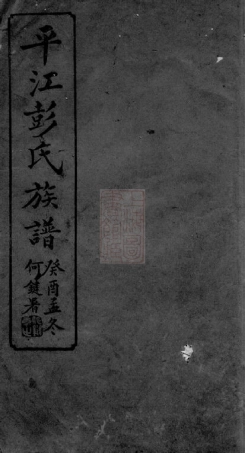 平江彭氏族譜
癸酉孟冬
何鍵署